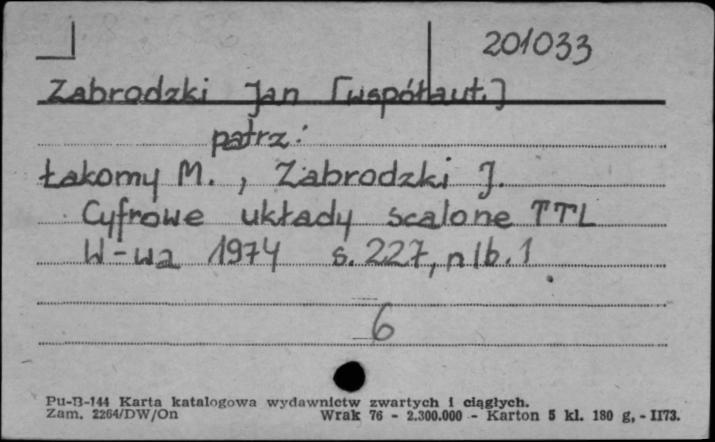 201033
Zabrodzki Jan [współaut.]
patrz:
Łakomy M., Zabrodzki J.
Cyfrowe układy scalone TTL
W-wa 1974 s. 227, nlb. 1
6
Pu-B-144 Karta katalogowa wydawnictw zwartych i ciągłych.
Zam. 2264/DW/On Wrak 76 - 2.300.000 - Karton 5 kl. 180 g, - II73.